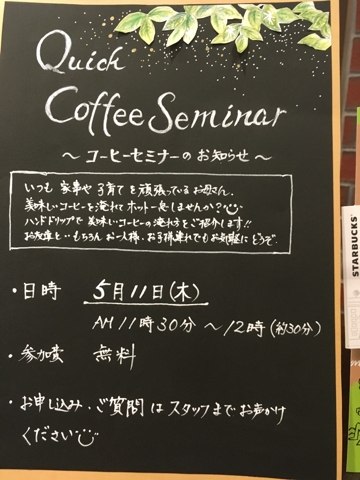 Quick
Coffee Seminar
～ コーヒーセミナーのお知らせ ～
いつも 家事や子育てを頑張っているお母さん、
美味しいコーヒーを淹れてホット一息しませんか？
ハンドドリップで美味しいコーヒーの淹れ方をご紹介します!!
お友達と、もちろんお一人様、お子様連れでもお気軽にどうぞ
・日時 5月11日(木)
AM 11時30分 ～12時(約30分)
・参加費 無料
・お申し込み・ご質問はスタッフまでお声かけ
ください
STARBUCKS